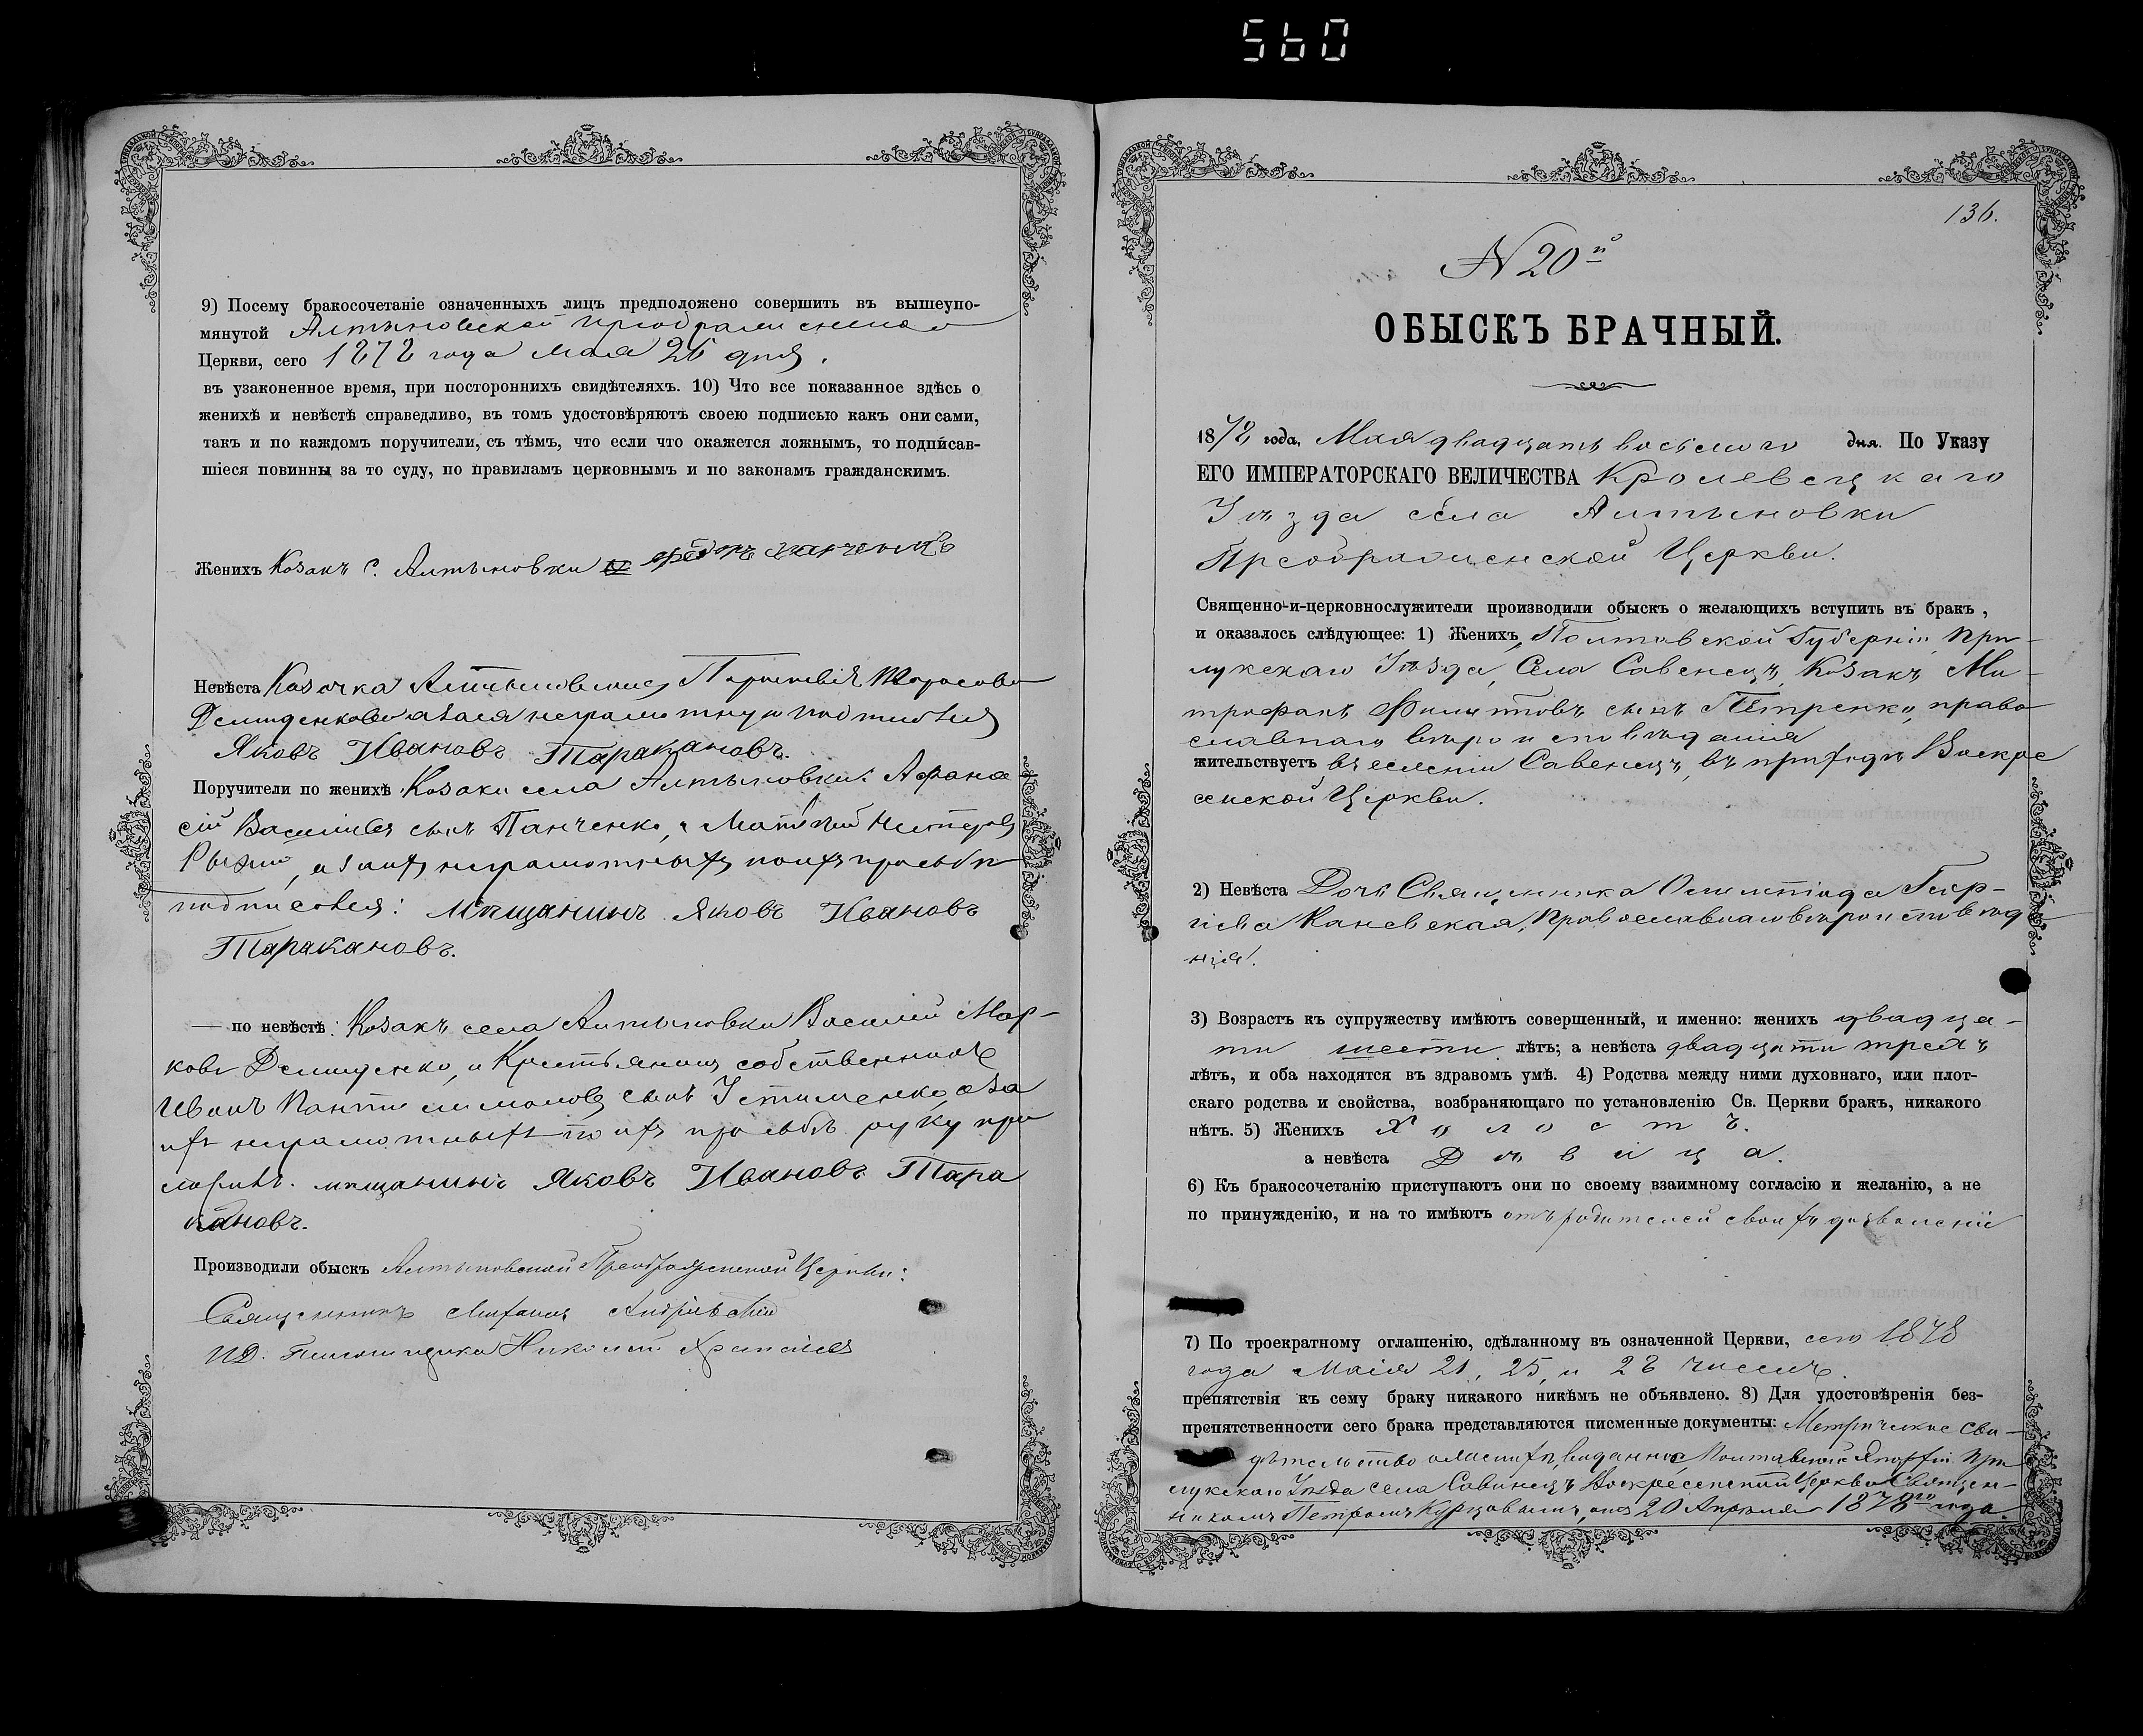 560
9) Посему бракосочетаніе означенныхъ лицъ предположено совершить въ вышеупо-
мянутой Алтыновской
Церкви, сего 1878 года мая 26 дня.
въ узаконенное время, при постороннихъ свидѣтеляхъ. 10) Что все показанное здѣсь о
женихѣ и невѣстѣ справедливо, въ томъ удостовѣряютъ своею подписью какъ они сами,
такъ и по каждомъ поручители, съ тѣмъ, что если что окажется ложнымъ, то подписав-
шіеся повинны за то суду, по правиламъ церковнымъ и по законамъ гражданскимъ.
Женихъ Козакъ с. Алтыновки
Невѣста Козачка
Яковъ Ивановъ Таракановъ.
Поручители по женихѣ Козаки села Алтыновки: Афана
сій сынъ Панченко, и
Рыжій, а за ихъ неграмотныхъ по ихъ просьбѣ
подписался: мѣщанинъ Яковъ Ивановъ
Таракановъ.
— по невѣстѣ: Козакъ села Алтыновки Василий Мар-
ковъ Демиденко, и собственникъ
Иванъ сынъ Устименко, а за
ихъ неграмотныхъ по ихъ просьбѣ руку при
мѣщанинъ Яковъ Ивановъ Тара
кановъ.
Производили обыскъ Алтыновской Преображенской Церкви:
Священникъ
И.Д. Псаломщика Николай
136.
N 20й
ОБЫСКЪ БРАЧНЫЙ.
1878 года, Мая двадцать восьмого дня. По Указу
ЕГО ИМПЕРАТОРСКАГО ВЕЛИЧЕСТВА Кролевецкаго
Уѣзда села Алтыновки
Преображенской Церкви.
Священно-и-церковнослужители производили обыскъ о желающихъ вступить въ бракъ,
и оказалось слѣдующее: 1) Женихъ, Полтавской Губерніи, При-
лукскаго Уѣзда, Села Савенецъ, Козакъ, Ми-
трофанъ сынъ Петренко, право
славнаго вѣроисповѣданія
жительствуетъ въ селеніи Савенецъ, въ приходѣ Воскре
сенской Церкви.
2) Невѣста Дочь Священника Геор-
гіева Каневская, Православнаго вѣроисповѣда
нія.
3) Возрастъ къ супружеству имѣютъ совершенный, и именно: женихъ двадца-
ти шести лѣтъ; а невѣста двадцати трехъ
лѣтъ, и оба находятся въ здравомъ умѣ. 4) Родства между ними духовнаго, или плот-
скаго родства и свойства, возбраняющаго по установленію Св. Церкви бракъ, никакого
нѣтъ. 5) Женихъ Холостъ.
а невѣста Дѣвица.
6) Къ бракосочетанію приступаютъ они по своему взаимному согласію и желанію, а не
по принужденію, и на то имѣютъ отъ родителей своихъ дозволеніе
7) По троекратному оглашенію, сдѣланному въ означенной Церкви, сего 1878
года Маія 21, 25, и 28 чиселъ.
препятствія къ сему браку никакого никѣмъ не объявлено. 8) Для удостовѣренія без-
препятственности сего брака представляются писменные документы: Метрическое Сви-
дѣтельство При
лукскаго Уѣзда села Савинецъ Воскресенской Церкви Священ-
никомъ Петромъ отъ 20 Апрѣля 1878го года.